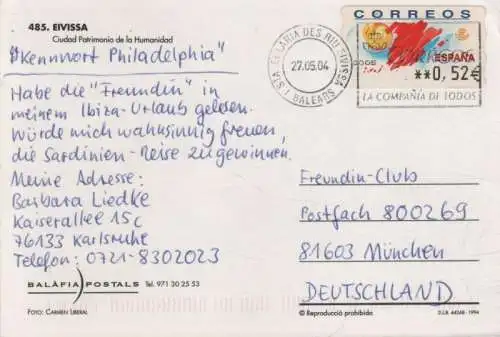 485. EIVISSA
Ciudad Patrimonio de la Humanidad
"Kennwort Philadelphia"
Habe die "Freundin" in
meinem Ibiza-Urlaub gelesen.
Würde mich wahnsinnig freuen,
die Sardinien-Reise zu gewinnen.
Meine Adresse:
Barbara Liedke
Kaiserallee 15c
76133 Karlsruhe
Telefon: 0721-8302023
BALÀFIA POSTALS Tel. 971 30 25 53
FOTO: CARMEN LIBERAL
DES RIU EIVISSA
27.05.04
BALEARS
CORREOS
ESPAÑA
**0,52€
LA COMPAÑIA DE TODOS
Freundin-Club
Postfach 800269
81603 München
DEUTSCHLAND
© Reproducció prohibida
D.L.B. 44348 - 1994